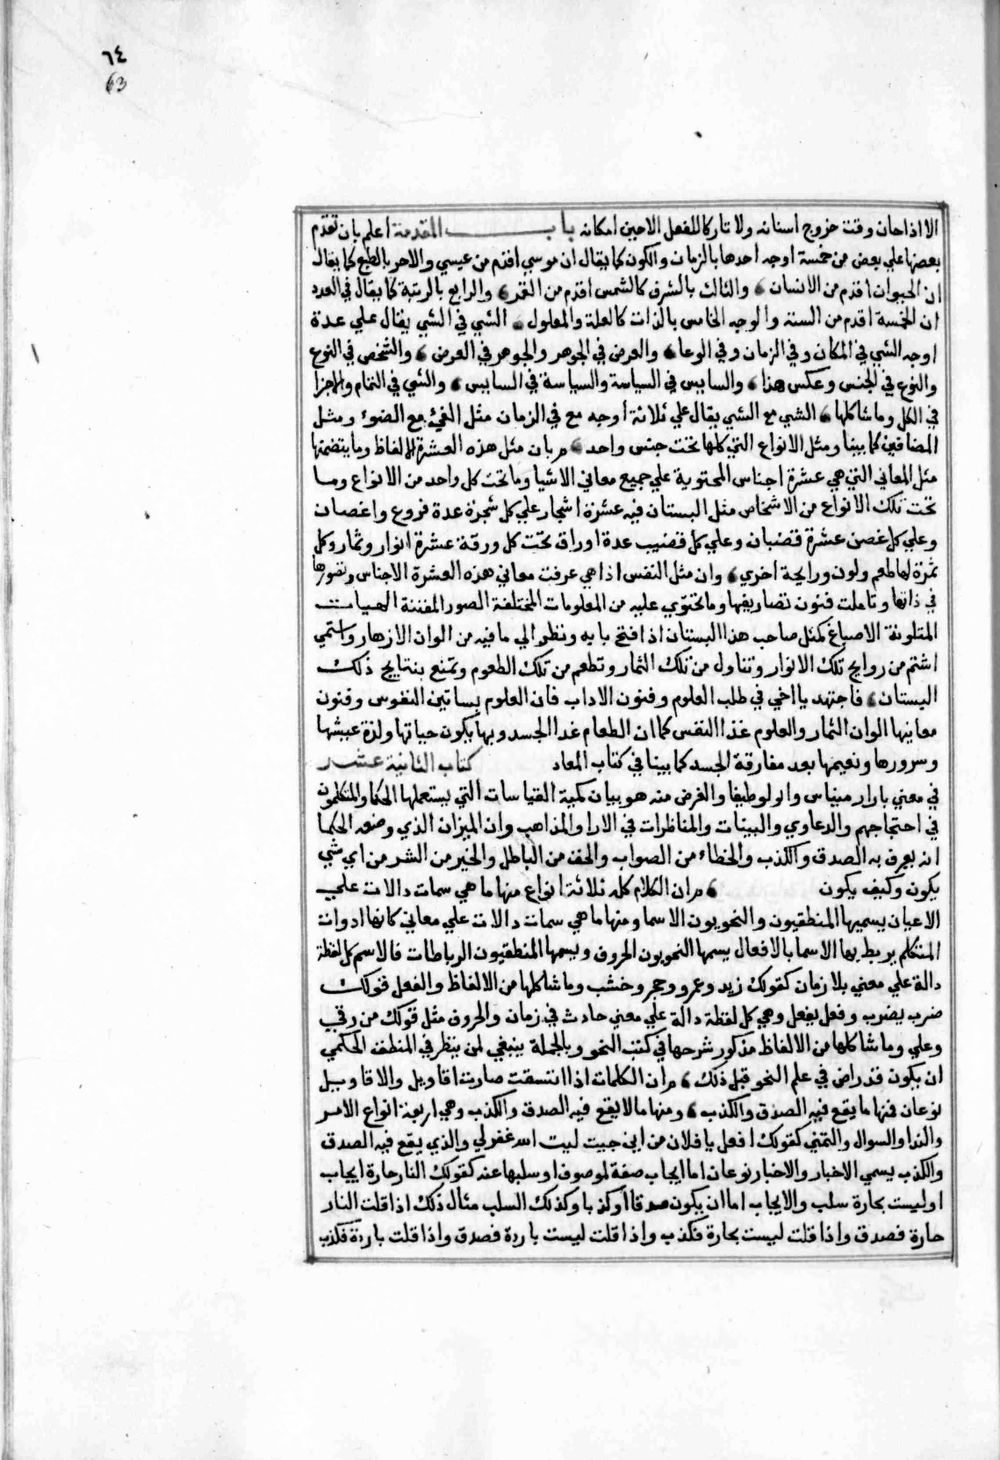 ٦٤
63
الا اذا حان وقت خروج اسنانه ولا تاركا للفعل الا حين امكانه باب المقدمة اعلم بان تقدم
بعضها علي بعض من خمسة اوجه احدها بالزمان والكون كما يقال ان موسي اقدم من عيسي والاخر بالطبع كما يقال
ان الحيوان اقدم من الانسان والثالث بالشرف كالشمس اقدم من القمر والرابع بالرتبة كما يقال في العدد
ان الخمسة اقدم من الستة والوجه الخامس بالذات كالعلة والمعلول الشي في الشي يقال علي عدة
اوجه الشي في المكان وفي الزمان وفي الوعا والعرض في الجوهر والجوهر في العرض والشخص في النوع
والنوع في الجنس وعكس هذا والسايس في السياسة والسياسة في السايس والشي في التمام والاجزا
في الكل وما شاكلها الشي مع الشي يقال علي ثلاثة اوجه مع في الزمان مثل الفيء مع الضوء ومثل
المضافين كما بينا ومثل الانواع التي كلها تحت جنس واحد م بان مثل هذه العشرة الالفاظ وما يتضمنها
مثل المعاني التي هي عشرة اجناس المحتوية علي جميع معاني الاشيا وما تحت كل واحد من الانواع وما
تحت تلك الانواع من الاشخاص مثل البستان فيه عشرة اشجار علي كل شجرة عدة فروع واغصان
وعلي كل غصن عشرة قضبان وعلي كل قضيب عدة اوراق تحت كل ورقة عشرة انوار وثمار وكل
ثمرة لها طعم ولون ورايحة اخري وان مثل النفس اذا هي عرفت معاني هذه العشرة الاجناس وتصورها
في ذاتها وتاملت فنون تصاريفها وما تحتوي عليه من المعلومات المختلفة الصور المفننة الهيات
المتلونة الاصباغ كمثل صاحب هذا البستان اذا فتح بابه ونظر الي ما فيه من الوان الازهار واستمي
اشتم من روايح تلك الانوار وتناول من تلك الثمار وتطعم من تلك الطعوم وتمتع بنتايج ذلك
البستان فاجتهد يا اخي في طلب العلوم وفنون الاداب فان العلوم بساتين النفوس وفنون
معانيها الوان الثمار والعلوم غذا النفس كما ان الطعام غذا الجسد وبها يكون حياتها ولذة عيشها
وسرورها ونعيمها بعد مفارقة الجسد كما بينا في كتاب المعاد كتاب الثانية عشر
في معني بارارمنياس وانولوطيقا والغرض منه هو بيان كمية القياسات التي يستعملها الحكما والمتكلمون
في احتجاجهم والدعاوي والبينات والمناظرات في الارا والمذاهب وان الميزان الذي وضعه الحكما
انه يعرف به الصدق والكذب والخطاء من الصواب والحق من الباطل والخير من الشر من اي شي
يكون وكيف يكون م ان الكلام كله ثلاثة انواع منها ما هي سمات دالات علي
الاعيان يسميها المنطقيون والنحويون الاسما ومنها ما هي سمات دالات علي معاني كانها ادوات
المتكلم يربط بها الاسما بالافعال يسمها النحويون الحروف ويسمها المنطقيون الرباطات فالاسم كل لفظة
دالة علي معني بلا زمان كقولك زيد وعمرو وحجر وخشب وما شاكلها من الالفاظ والفعل قولك
ضرب يضرب وفعل يفعل وهي كل لفظة دالة علي معني حادث في زمان والحروف مثل قولك من وفي
وعلي وما شاكلها من الالفاظ مذكور شرحها في كتب النحو وبالجملة ينبغي لمن ينظر في المنطق الحكمي
ان يكون قد راض في علم النحو قبل ذلك م ان الكلمات اذا اتسقت صارت اقاويل والاقاويل
نوعان فمنها ما يقع فيه الصدق والكذب ومنها ما لا يقع فيه الصدق والكذب وهي اربعة انواع الامر
والندا والسوال والتمني كقولك افعل يا فلان من اين جيت ليت الله غفر لي والذي يقع فيه الصدق
والكذب يسمي الاخبار والاخبار نوعان اما ايجاب صفة لموصوف او سلبها عنه كقولك النار حارة ايجاب
اوليست بحارة سلب والايجاب اما ان يكون صدقا او كذبا وكذلك السلب مثال ذلك اذا قلت النار
حارة فصدق واذا قلت ليست بحارة فكذب واذا قلت ليست باردة فصدق واذا قلت باردة فكذب